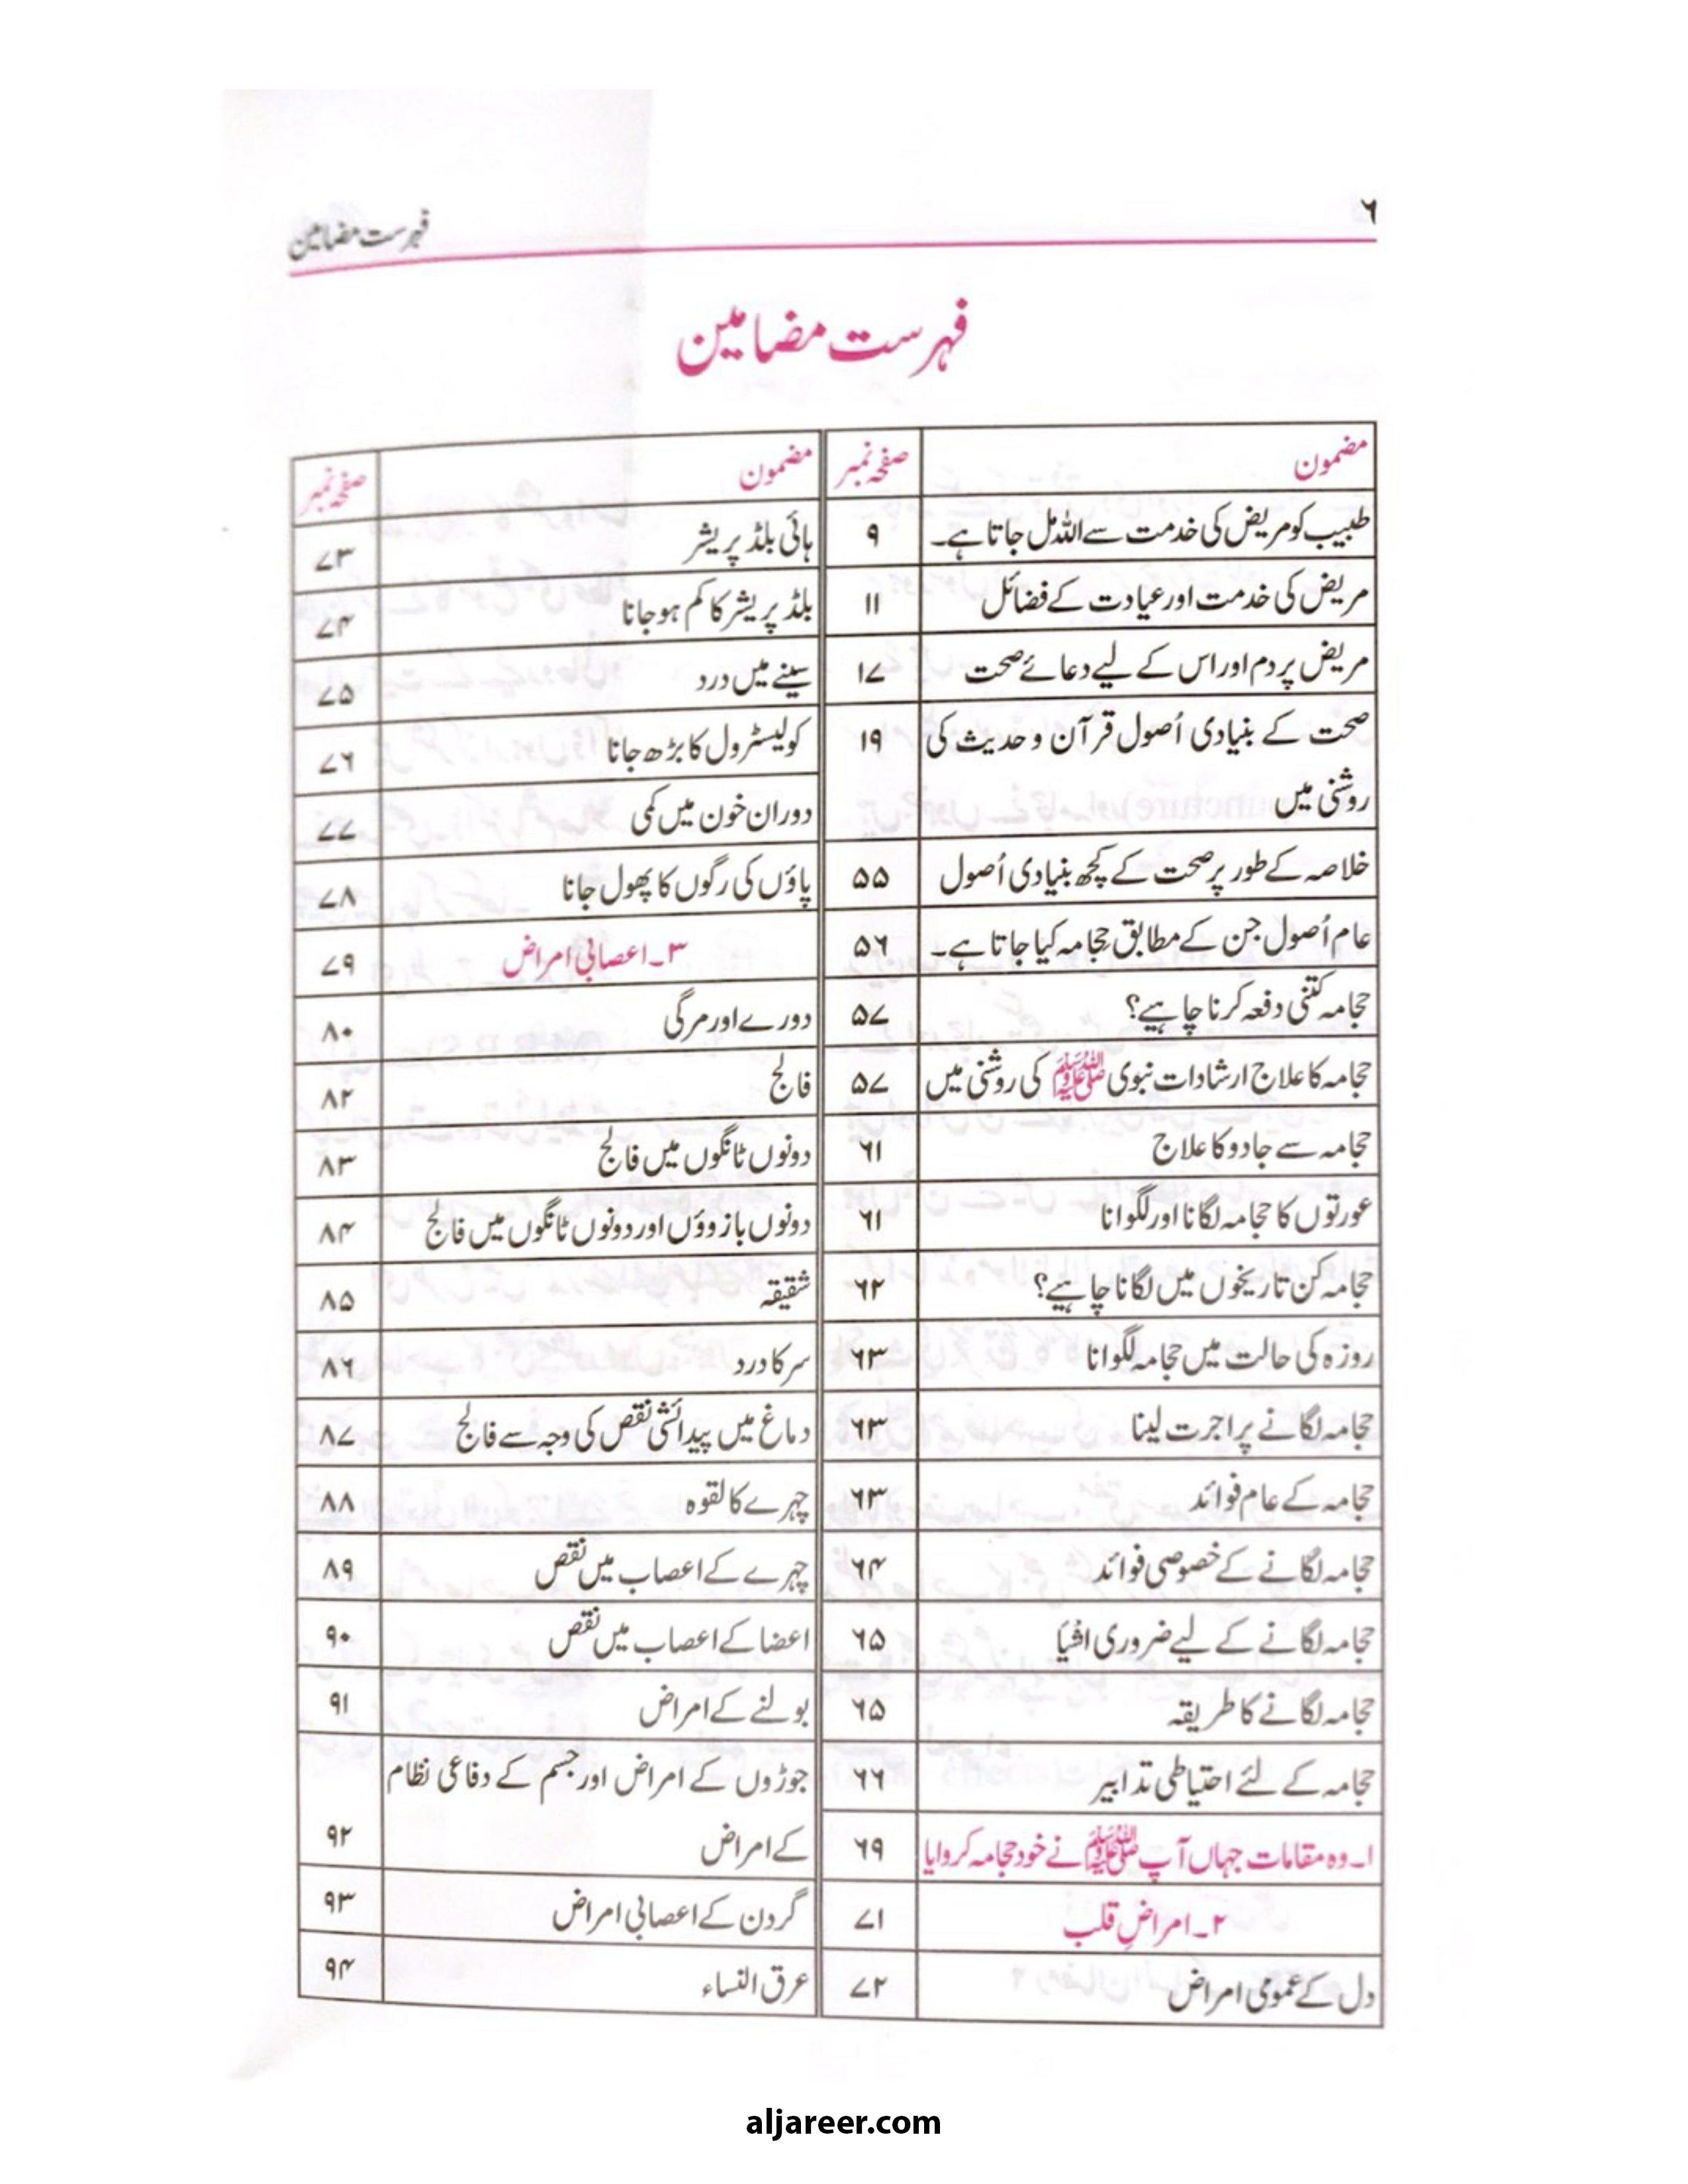 ۶
فہرست مضامین
فہرست مضامین
مضمون صفحہ نمبر
طبیب کو مریض کی خدمت سے اللہ مل جاتا ہے۔ ۹
مریض کی خدمت اور عیادت کے فضائل ۱۱
مریض پر دم اور اس کے لیے دعائے صحت ۱۷
صحت کے بنیادی اُصول قرآن و حدیث کی ۱۹
روشنی میں
خلاصہ کے طور پر صحت کے کچھ بنیادی اُصول ۵۵
عام اُصول جن کے مطابق حجامہ کیا جاتا ہے۔ ۵۶
حجامہ کتنی دفعہ کرنا چاہیے؟ ۵۷
حجامہ کا علاج ارشادات نبوی ﷺ کی روشنی میں ۵۷
حجامہ سے جادو کا علاج ۶۱
عورتوں کا حجامہ لگانا اور لگوانا ۶۱
حجامہ کن تاریخوں میں لگانا چاہیے؟ ۶۲
روزہ کی حالت میں حجامہ لگوانا ۶۳
حجامہ لگانے پر اجرت لینا ۶۳
حجامہ کے عام فوائد ۶۳
حجامہ لگانے کے خصوصی فوائد ۶۴
حجامہ لگانے کے لیے ضروری اشیأ ۶۵
حجامہ لگانے کا طریقہ ۶۵
حجامہ کے لئے احتیاطی تدابیر ۶۶
۱۔ وہ مقامات جہاں آپ ﷺ نے خود حجامہ کروایا ۶۹
۲۔ امراضِ قلب ۷۱
دل کے عمومی امراض ۷۲
مضمون صفحہ نمبر
ہائی بلڈ پریشر ۷۳
بلڈ پریشر کا کم ہو جانا ۷۴
سینے میں درد ۷۵
کولیسٹرول کا بڑھ جانا ۷۶
دوران خون میں کمی ۷۷
پاؤں کی رگوں کا پھول جانا ۷۸
۳۔ اعصابی امراض ۷۹
دورے اور مرگی ۸۰
فالج ۸۲
دونوں ٹانگوں میں فالج ۸۳
دونوں بازووؤں اور دونوں ٹانگوں میں فالج ۸۴
شقیقہ ۸۵
سر کا درد ۸۶
دماغ میں پیدائشی نقص کی وجہ سے فالج ۸۷
چہرے کا لقوہ ۸۸
چہرے کے اعصاب میں نقص ۸۹
اعضا کے اعصاب میں نقص ۹۰
بولنے کے امراض ۹۱
جوڑوں کے امراض اور جسم کے دفاعی نظام
کے امراض ۹۲
گردن کے اعصابی امراض ۹۳
عرق النساء ۹۴
aljareer.com